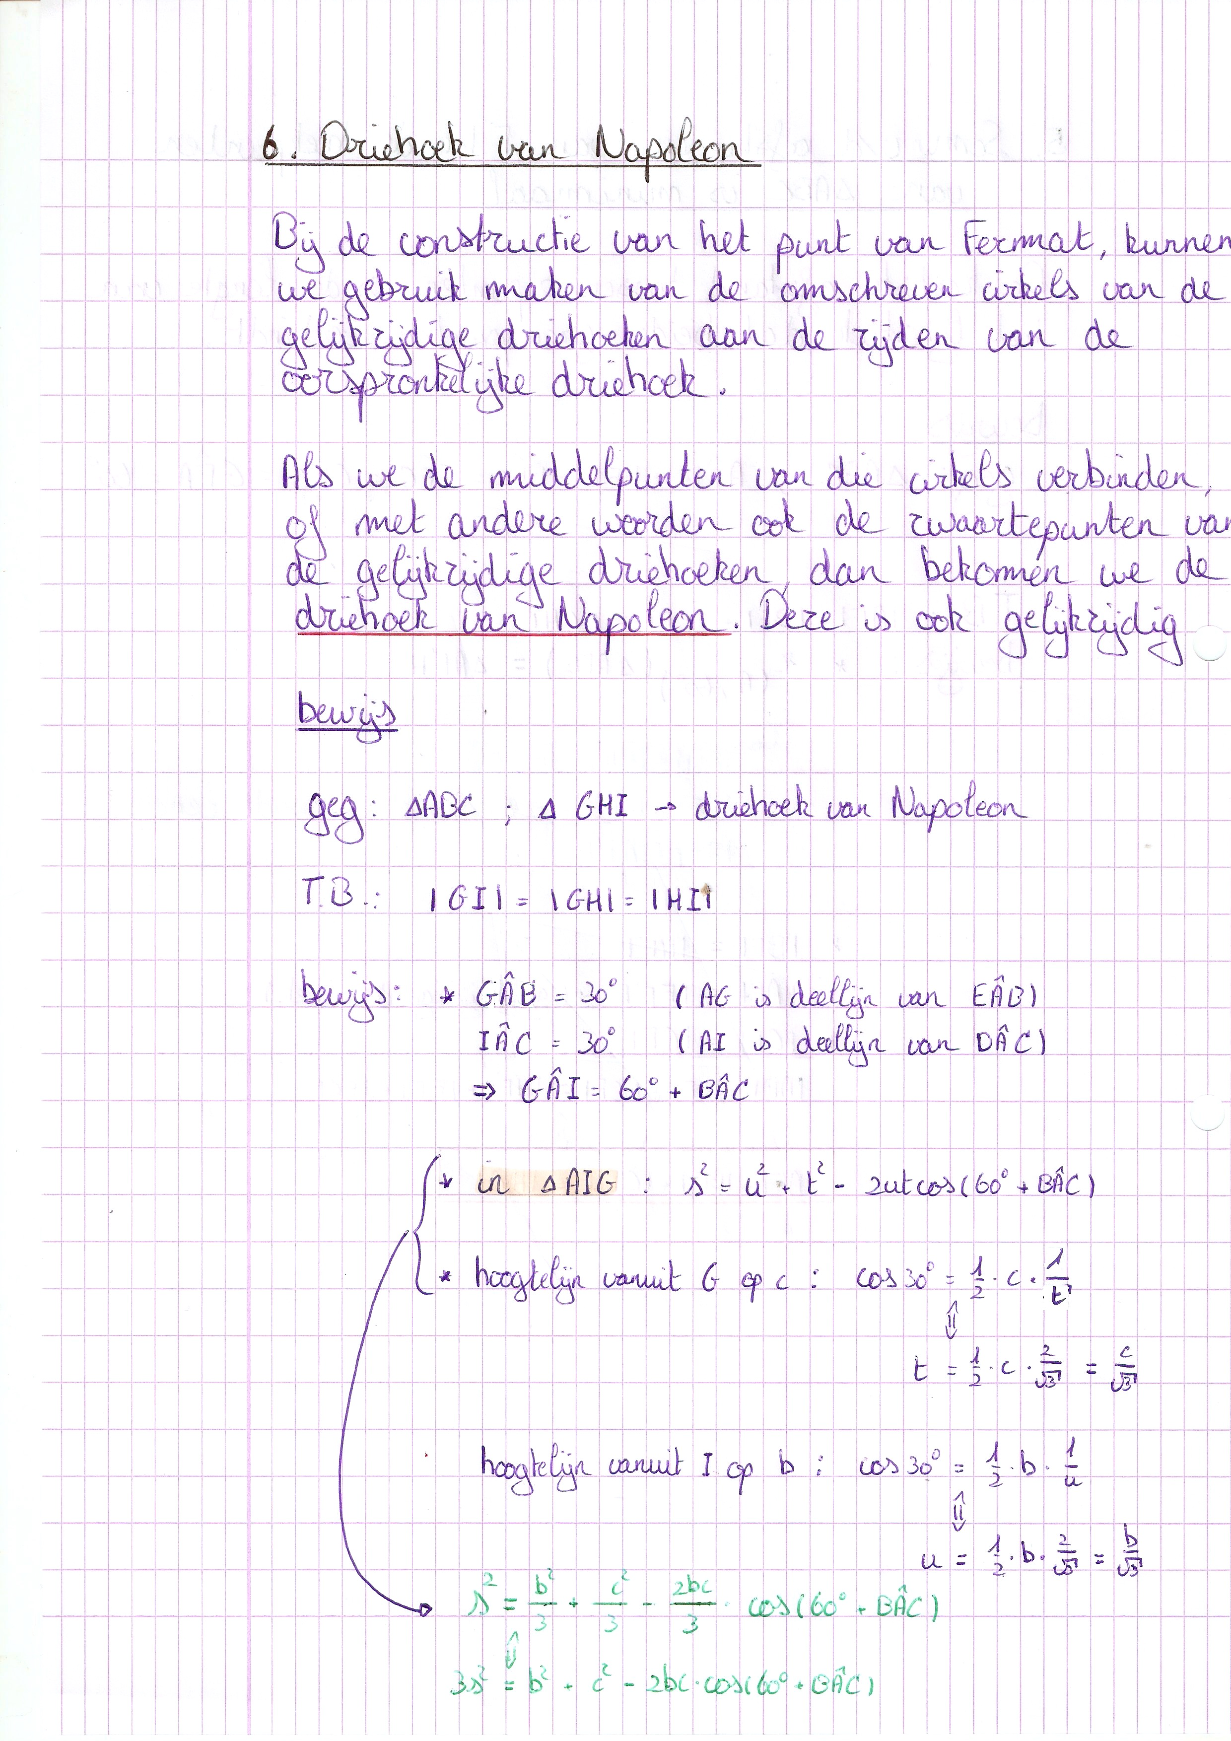 6. Driehoek van Napoleon
Bij de constructie van het punt van Fermat, kunnen
we gebruik maken van de omschreven cirkels van de
gelijkzijdige driehoeken aan de zijden van de
oorspronkelijke driehoek.
Als we de middelpunten van die cirkels verbinden,
of met andere woorden ook de zwaartepunten van
de gelijkzijdige driehoeken, dan bekomen we de
driehoek van Napoleon. Deze is ook gelijkzijdig
bewijs
geg: ΔABC ; Δ GHI → driehoek van Napoleon
T.B.: |GI| = |GH| = |HI|
bewijs: * GÂB = 30° (AG is deellijn van EÂB)
IÂC = 30° (AI is deellijn van DÂC)
⇒ GÂI = 60° + BÂC
* in ΔAIG : s² = u² + t² - 2ut cos(60° + BÂC)
* hoogtelijn vanuit G op c : cos 30° = 1/2 · c · 1/t
⇕
t = 1/2 · c · 2/√3 = c/√3
hoogtelijn vanuit I op b : cos 30° = 1/2 · b · 1/u
⇕
u = 1/2 · b · 2/√3 = b/√3
s² = b²/3 + c²/3 - 2bc/3 · cos(60° + BÂC)
⇕
3s² = b² + c² - 2bc · cos(60° + BÂC)